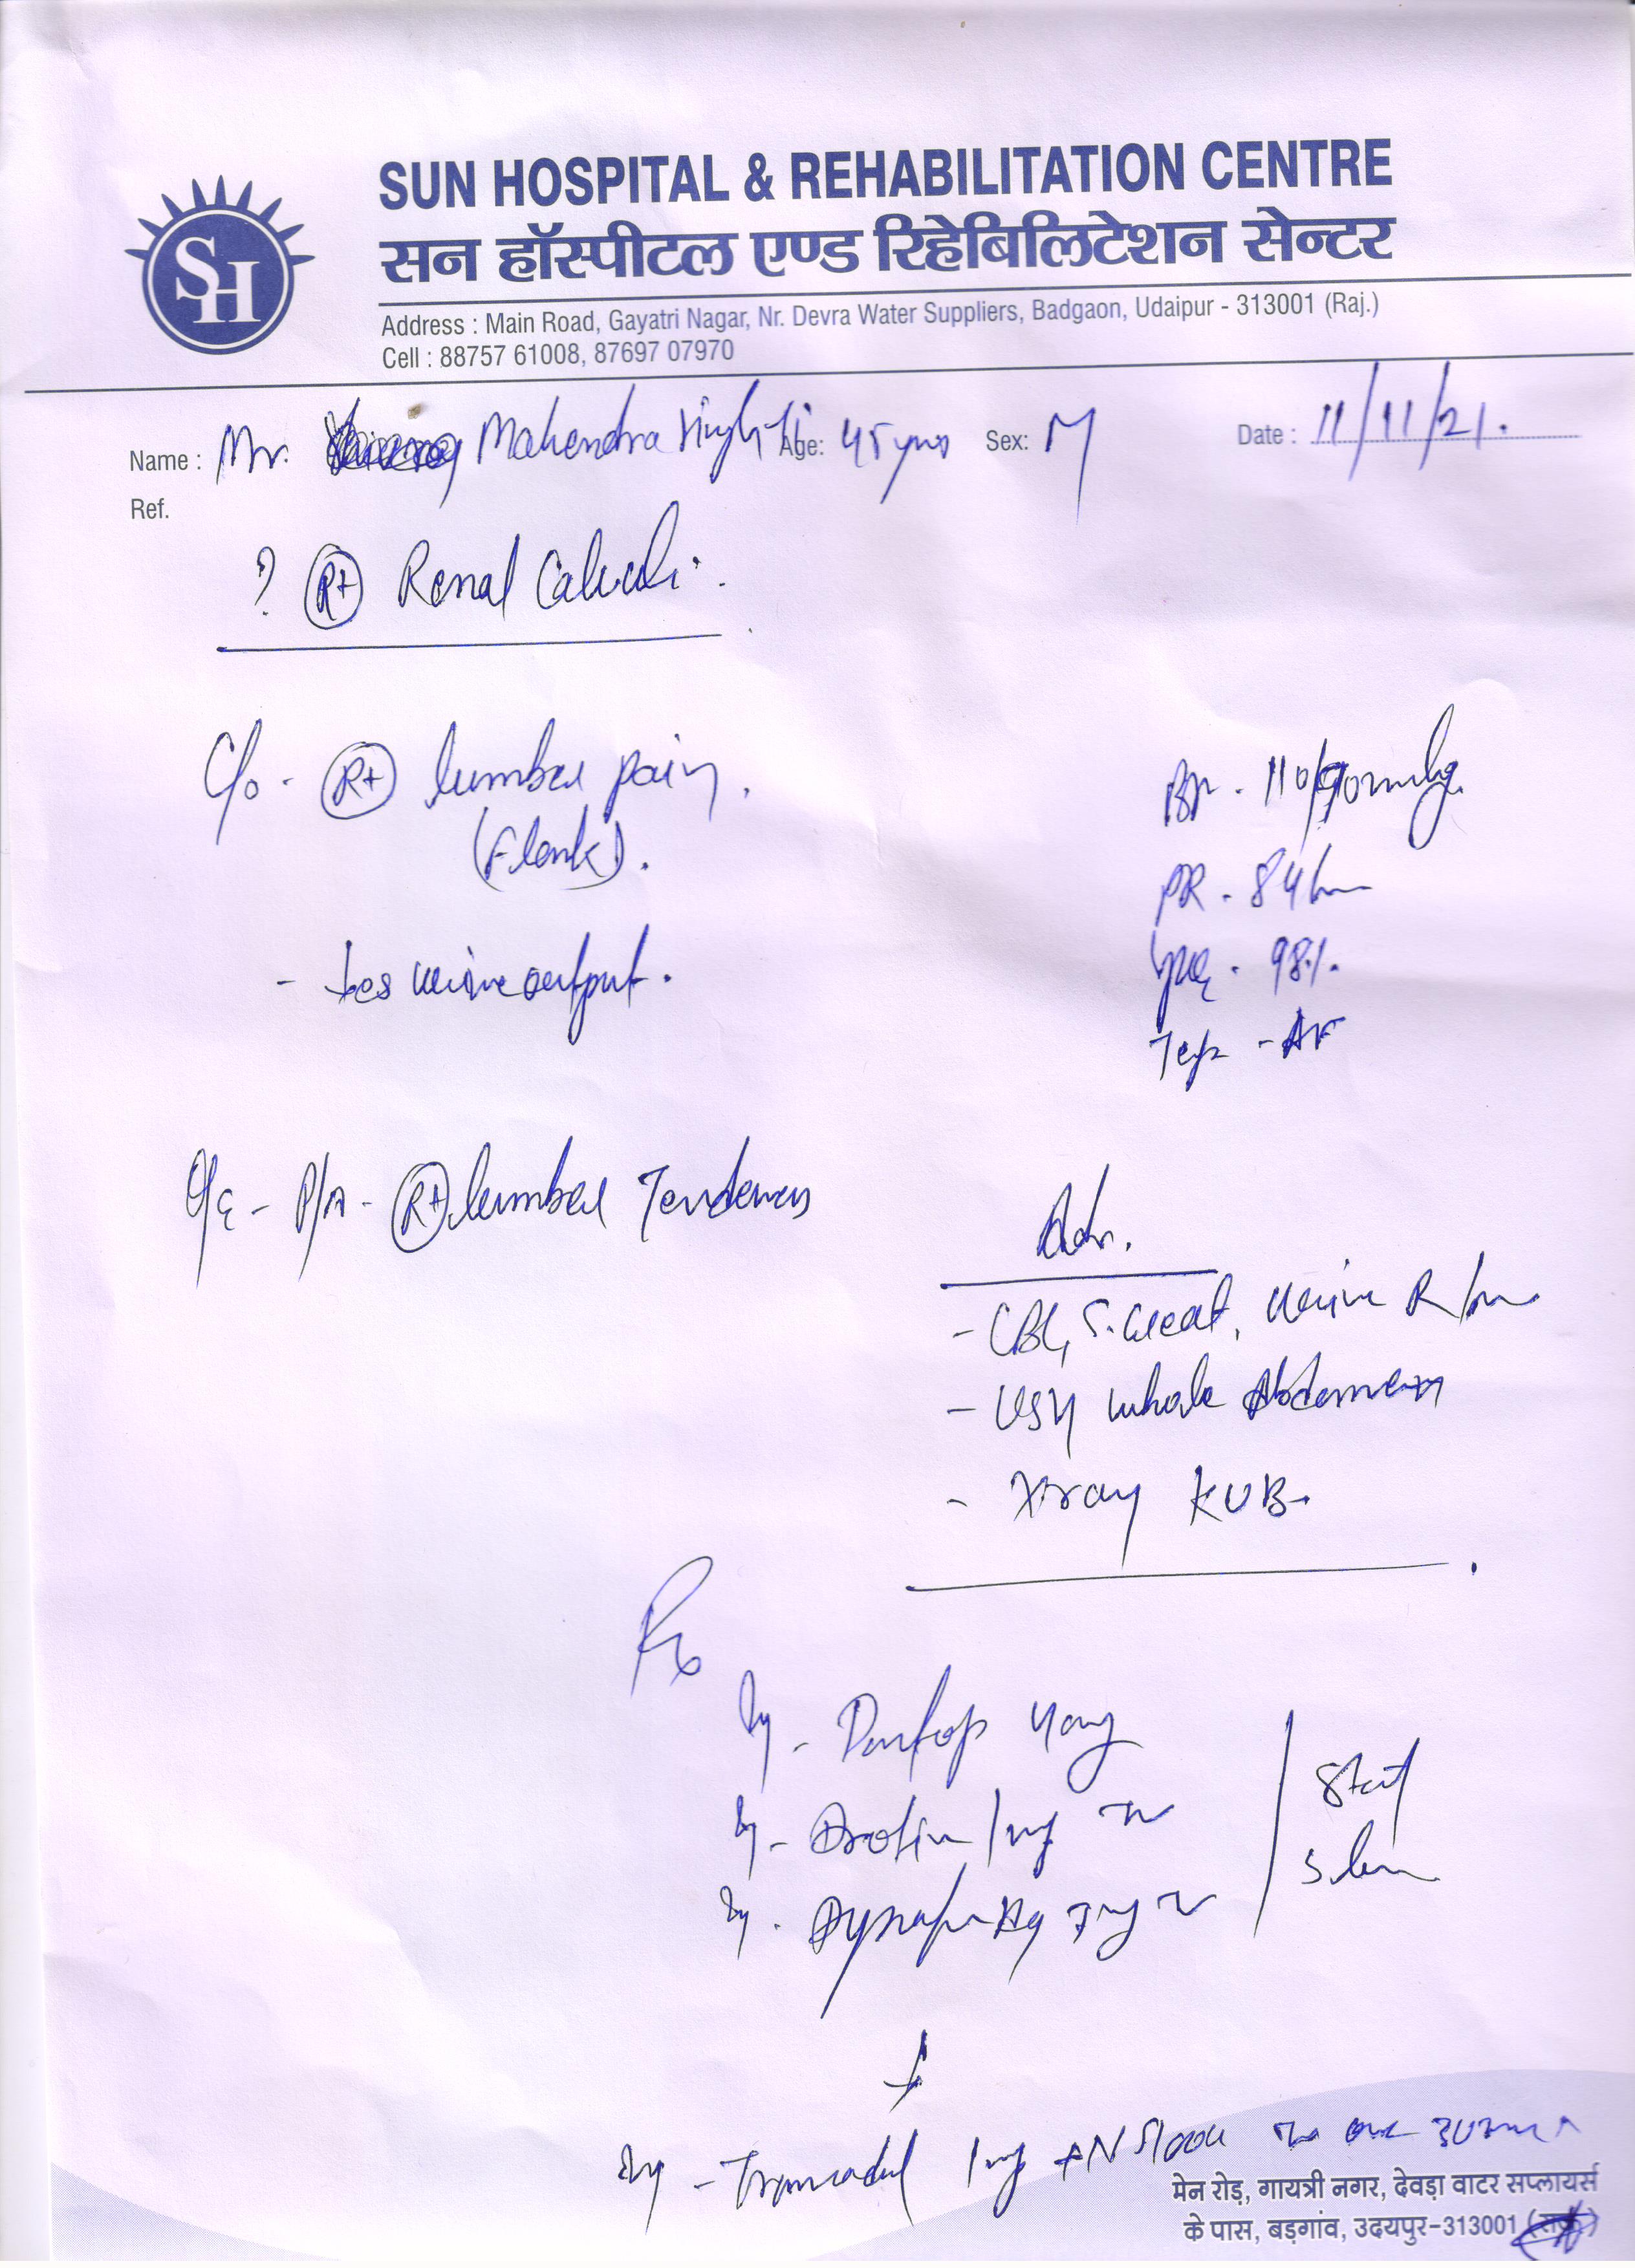 SUN HOSPITAL & REHABILITATION CENTRE
सन हॉस्पीटल एण्ड रिहेबिलिटेशन सेन्टर
SH
Address : Main Road, Gayatri Nagar, Nr. Devra Water Suppliers, Badgaon, Udaipur - 313001 (Raj.)
Cell : 88757 61008, 87697 07970
Name : Mr. Mahendra Singh Ji Age: 45 yrs Sex: M Date : 11/11/21.
Ref.
? Rt Renal Calculi.
C/o - Rt lumbar pain.
(Flank).
BP - 110/90 mmhg
PR - 84/
- 98%
- ↓es urine output.
Temp - AF
O/E - P/A - Rt lumbar Tenderness
Adv.
- CBC, S. Creat, Urine R/m
- USG whole Abdomen
- Xray KUB.
Rx
Inj - Pantop 40mg
Inj - Drotin IV
Inj - Dynapar Aq IV
Stat
Inj - Tramadol + NS 100cc
मेन रोड़, गायत्री नगर, देवड़ा वाटर सप्लायर्स
के पास, बड़गांव, उदयपुर-313001 (राज.)